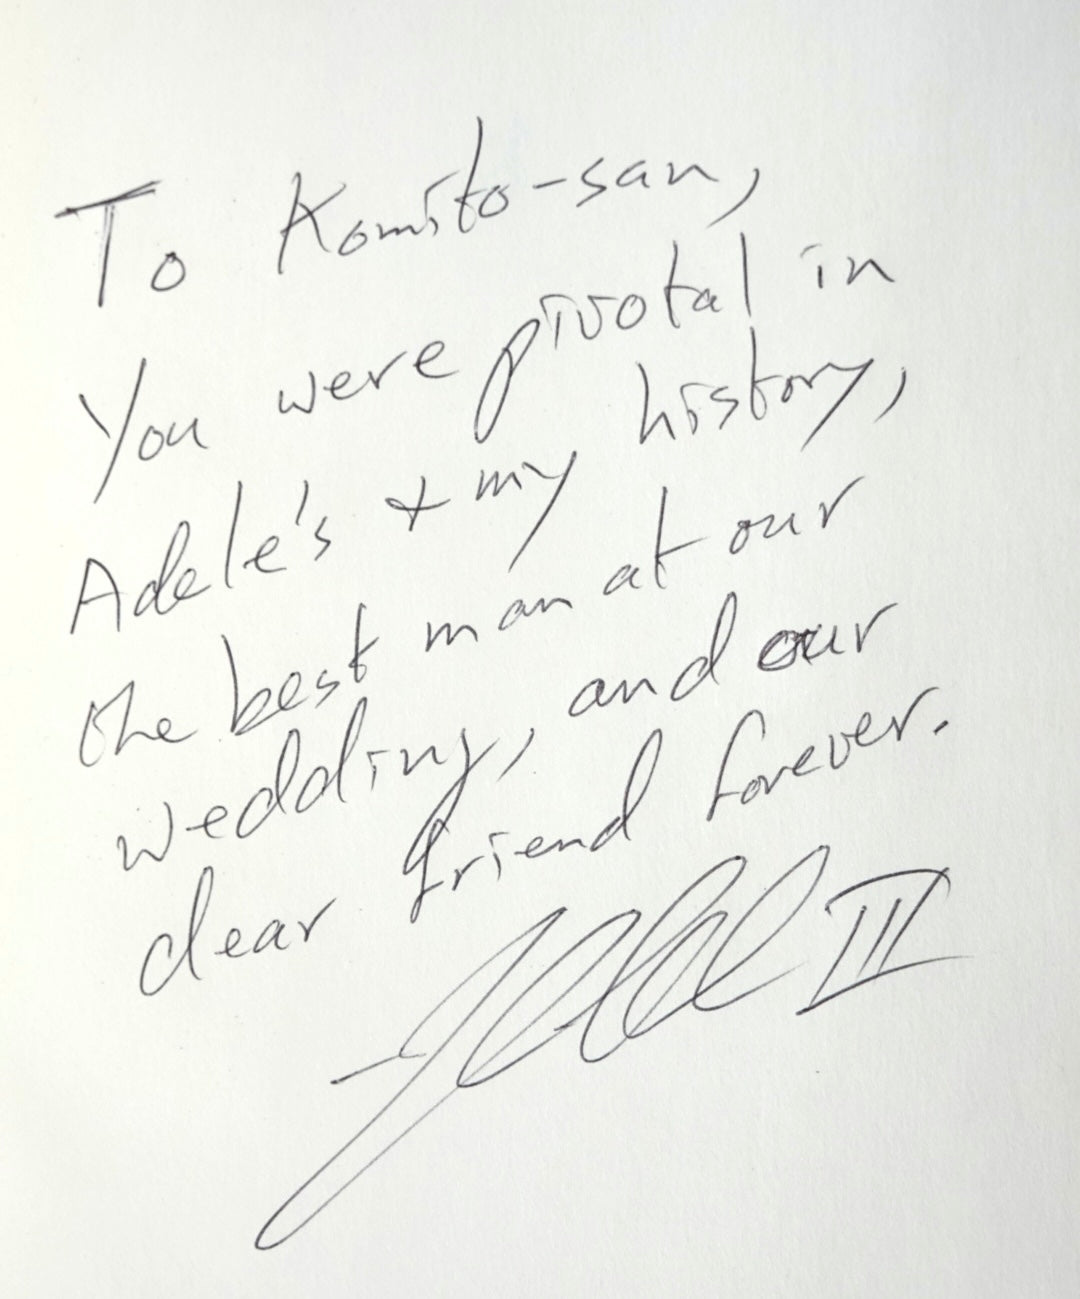 To Komito-san,
You were pivotal in
Adele's & my history,
the best man at our
wedding, and our
dear friend forever.
III